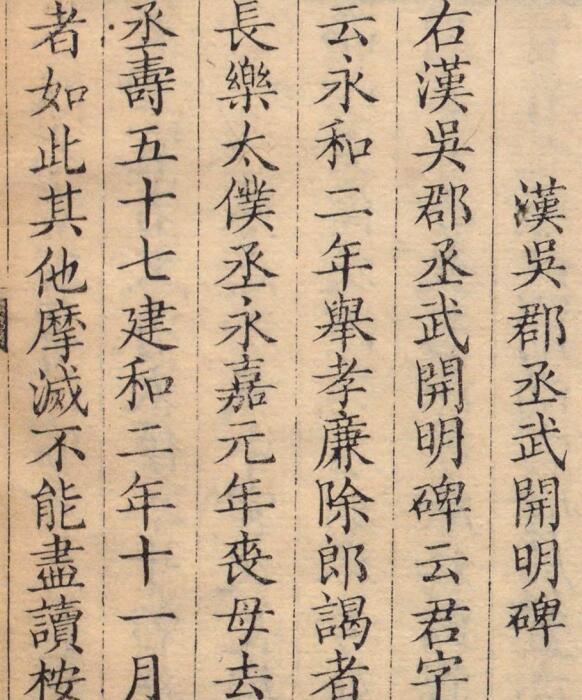 漢吳郡丞武開明碑
右漢吳郡丞武開明碑云君字
云永和二年舉孝廉除郎謁者
長樂太僕丞永嘉元年喪母去
丞壽五十七建和二年十一月
者如此其他摩滅不能盡讀桉